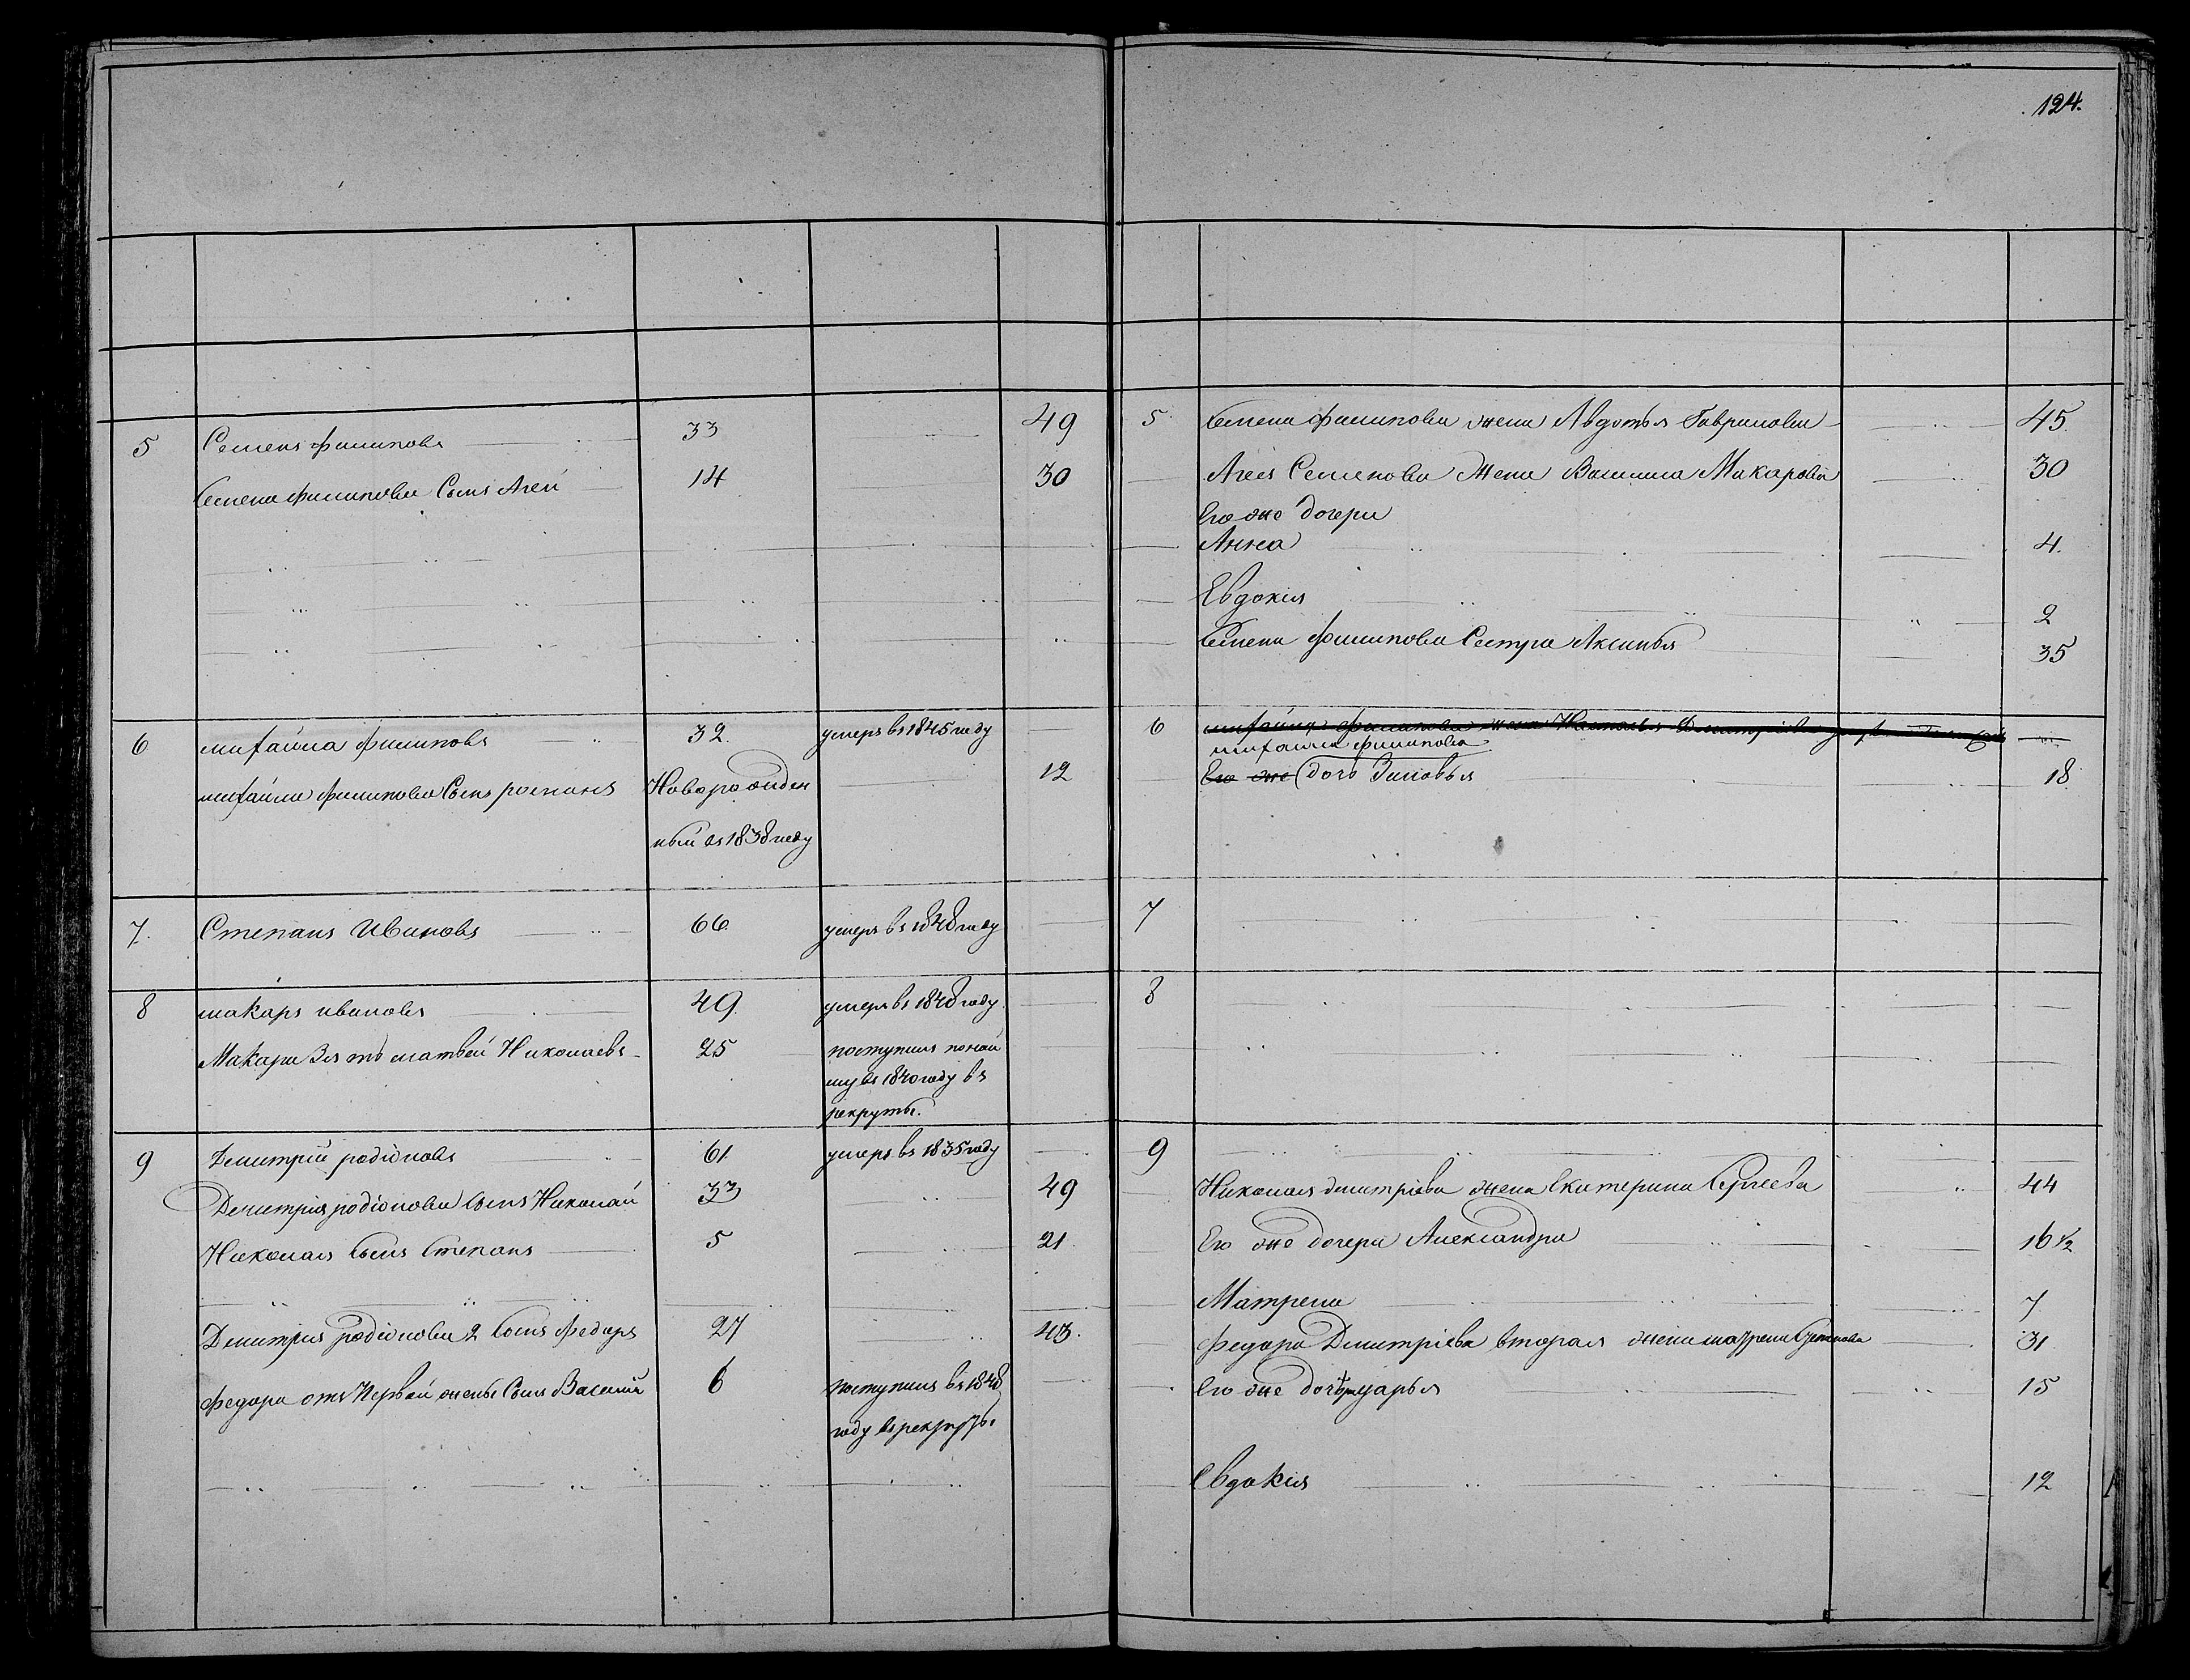 124.
5 Семенъ Филиповъ 33 49
Семена Филипова Сынъ Агей 14 30
6 михайла Филиповъ 32. умеръ въ 1845 году
михайлы Филипова Сынъ романъ Новорожден 12
ный въ 1838 году
7. Степанъ Ивановъ 66 умеръ въ 1848 году
8 макаръ ивановъ 49. умеръ въ 1848 году.
Макара Зять матвей Николаевъ 25 поступилъ понай
му въ 1840 году въ
рекруты.
9 Дмитрий родіоновъ 61 умеръ въ 1835 году
Дмитрия родіонова сынъ Николай 33 49
Николая Сынъ Степанъ 5 21
Дмитрия родіонова 2 Сынъ Федоръ 27 43.
Федора отъ Первой жены Сынъ Василий 6 поступилъ въ 1848
году въ рекруты
5 Семена Филипова жена Авдотья Гаврилова 45.
Агея Семенова Жена Василиса Макарова 30
Его же дочери
Анна 4.
Евдокия 2
Семена Филипова Сестра Аксинья 35
6 михайлы Филипова жена Настасья Дмитріева
михайлы филипова
Его же дочь Зиновья 18
7
8
9
Николая дмитріева жена Екатерина Сергеева 44
Его же дочери Александра 16 1/2
Матрена 7
Федора Дмитріева вторая жена матрена Степанова 31
Его же дочь марья 15
Евдокия 12